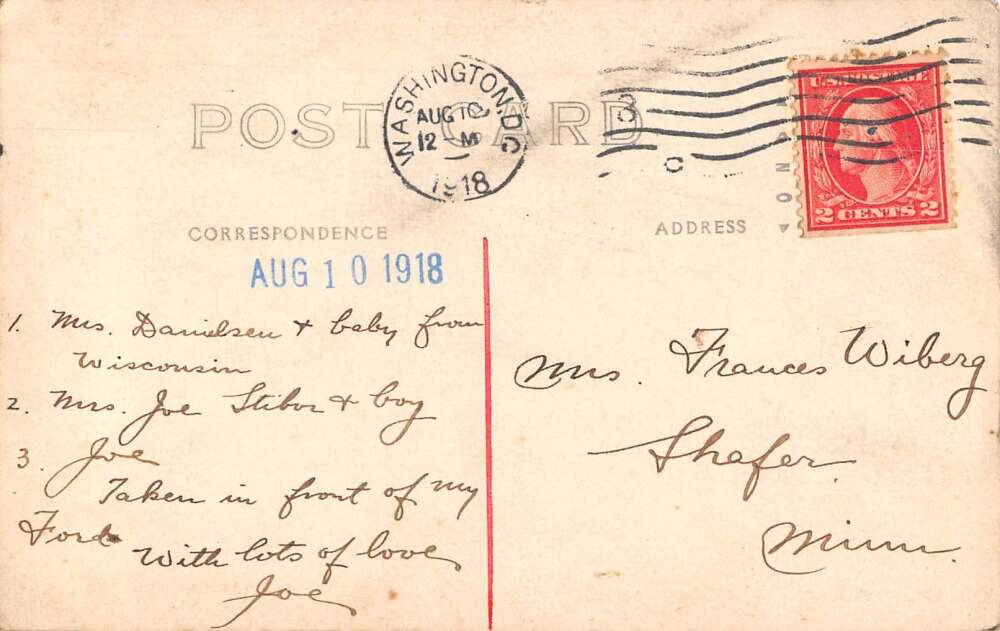 POST CARD
WASHINGTON, D.C.
AUG 10
12 M
1918
U.S. POSTAGE
2 CENTS 2
CORRESPONDENCE
ADDRESS
AUG 10 1918
1. Mrs. Danielsen + baby from
Wisconsin
2. Mrs. Joe Stibor + boy
3. Joe
Taken in front of my
Ford
With lots of love
Joe
Mrs. Frances Wiberg
Shafer
Minn.